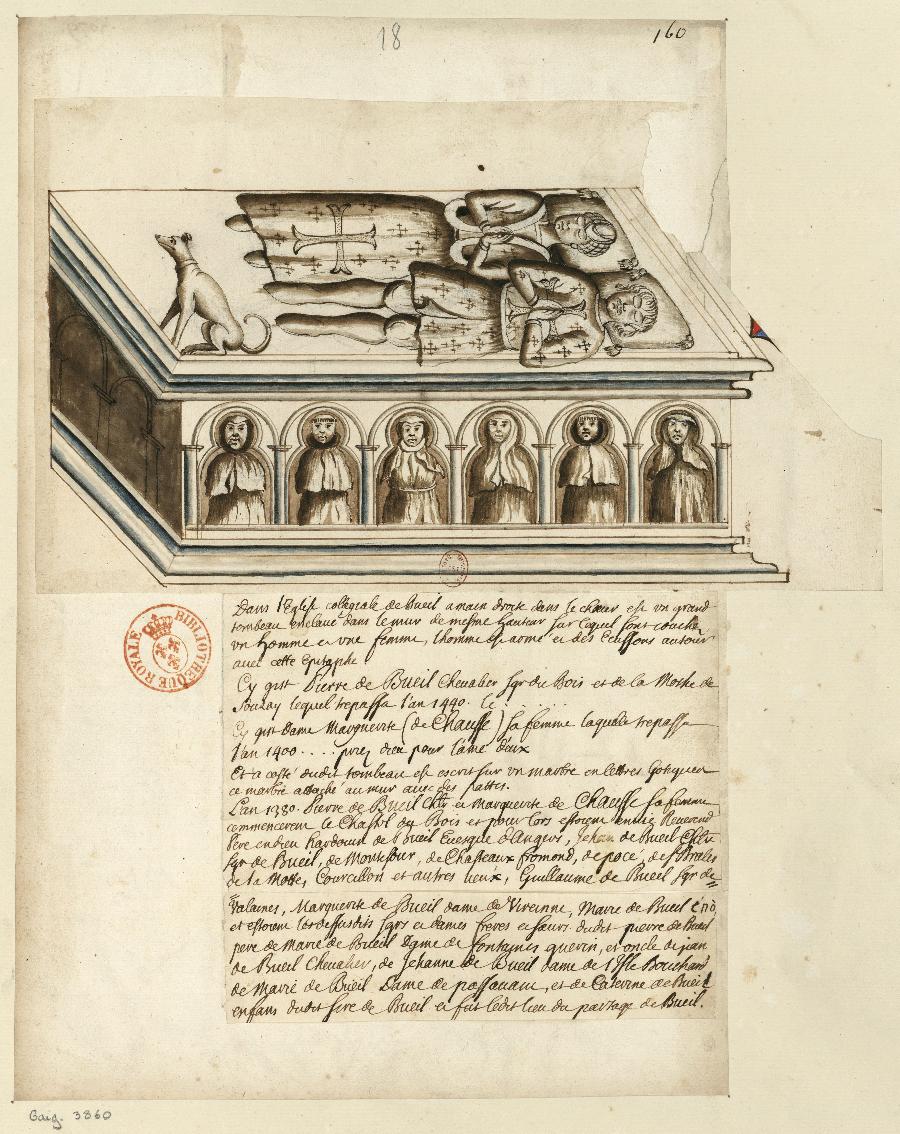 18
160
Dans l'Eglise collegiale de Bueil a main droite dans le chœur est un grand
tombeau enclavé dans le mur de mesme hauteur sur lequel sont couchez
un homme et une femme, l'homme est armé et des Ecussons autour
avec cette Epitaphe
Cy gist Pierre de Bueil Chevalier sgr du Bois et de la Mothe de
Souzay lequel trepassa l'an 1440. le . . . .
Cy gist Dame Marguerite (de Chausse) sa femme laquelle trepassa
l'an 1400 . . . . priez dieu pour l'ame d'eux
Et a costé dudit tombeau est escrit sur un marbre en lettres Gotiques
ce marbre attaché au mur avec des pattes.
L'an 1380. Pierre de Bueil Chlr et Marguerite de Chausse sa femme
commencerent le Chastel du Bois et pour lors estoient en vie Reverend
Pere en dieu hardouin de Bueil Evesque d'Angers, Jehan de Bueil Chlr
sgr de Bueil, de Montresour, de Chasteaux fromond, de pocé, de
de la Motte, Courcillon et autres lieux, Guillaume de Bueil sgr de
Valaines, Marguerite de Bueil dame de Viveinne, Marie de Bueil
et estoient les dessusdits sgrs et dames freres et sœurs dudit pierre de Bueil
pere de Marie de Bueil Dame de fontaines guerin, et oncle de jean
de Bueil Chevalier, de Jehanne de Bueil dame de l'Isle Bouchard
de Marie de Bueil Dame de passavant, et de Caterine de Bueil
enfans dudit sire de Bueil et fut ledit lieu du partage de Bueil.
BIBLIOTHEQUE ROYALE
Gaig. 3860